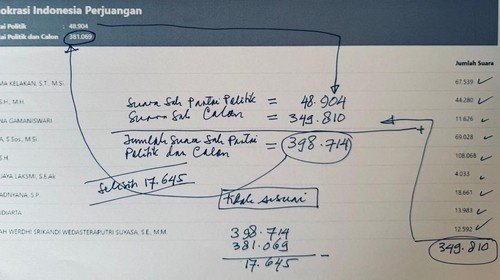 okrasi Indonesia Perjuangan
tai Politik : 48.904
tai Politik dan Calon : 381.069
Jumlah Suara
MA KELAKAN, S.T., M.Si. 67.539
S.H., M.H. 44.280
NA GAMANISWARI 11.626
A, S.Sos., M.Si. 69.028
S.H 108.068
JAYA LAKSMI, S.E.Ak 4.033
ADNYANA, S.P 18.661
IDIARTA 13.983
AH WERDHI SRIKANDI WEDASTERAPUTRI SUYASA, S.E., M.M. 12.592
Suara Sah Partai Politik = 48.904
Suara Sah Calon = 349.810
Jumlah Suara Sah Partai
Politik dan Calon = 398.714
Selisih 17.645
Tidak sesuai
398.714
381.069
17.645
349.810